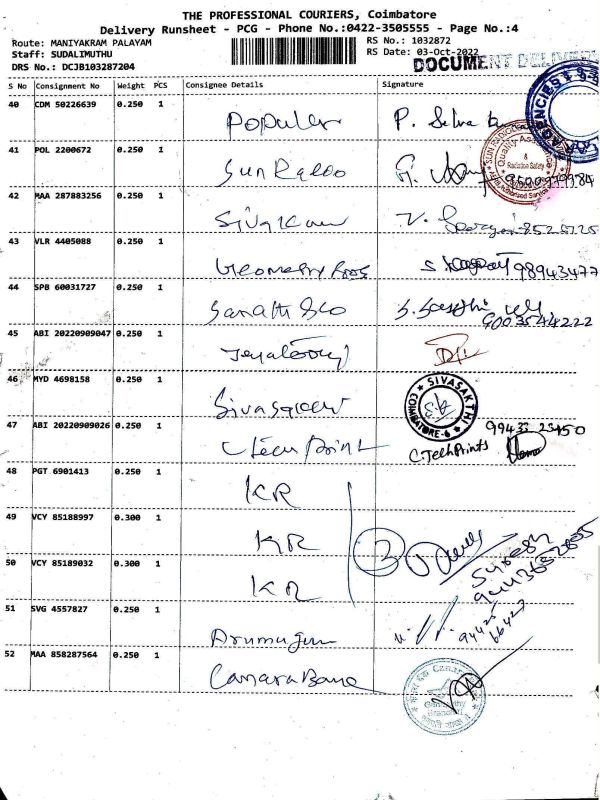 THE PROFESSIONAL COURIERS, Coimbatore
Delivery Runsheet - PCG - Phone No.:0422-3505555 - Page No.:4
Route: MANIYAKRAM PALAYAM
RS No.: 1032872
Staff: SUDALIMUTHU
RS Date: 03-Oct-2022
DRS No.: DCJB103287204
DOCUMENT DELIVERY
S No Consignment No Weight PCS Consignee Details Signature
40 CDM 50226639 0.250 1 Popular P. Selva
AGENCIES
41 POL 2200672 0.250 1 Sun Radio G.
SUN RADIO
Quality
&
Radiation Safety
42 MAA 287883256 0.250 1 V.
43 VLR 4405088 0.250 1 Geometry Bros S 98943477
44 SPB 60031727 0.250 1 S. 9003544222
45 ABI 20220909047 0.250 1
46 MYD 4698158 0.250 1
SIVASAKTHI
COIMBATORE-6
47 ABI 20220909026 0.250 1 C Tech Print C.Tech Prints
48 PGT 6901413 0.250 1 KR
49 VCY 85188997 0.300 1 KR 3
Suresh
50 VCY 85189032 0.300 1 KR
51 SVG 4557827 0.250 1 Arumugam
94425
66427
52 MAA 858287564 0.250 1 Canara Bank
Ganapathy